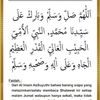 اَللّٰهُمَّ صَلِّ وَسَلِّمْ وَبَارِكْ عَلَى
سَيِّدِنَا مُحَمَّدٍ، النَّبِيِّ الْأُمِّيِّ
الْحَبِيْبِ الْعَالِي الْقَدْرِ الْعَظِيْمِ
الْجَاهِ، وَعَلَى آلِهِ وَصَحْبِهِ وَسَلِّمْ
Faidah :
Dari Al Imam AsSuyuthi bahwa barang siapa yang
melazimkan/selalu membaca Sholawat ini setiap
malam Jumat walaupun hanya sekali, maka tidak